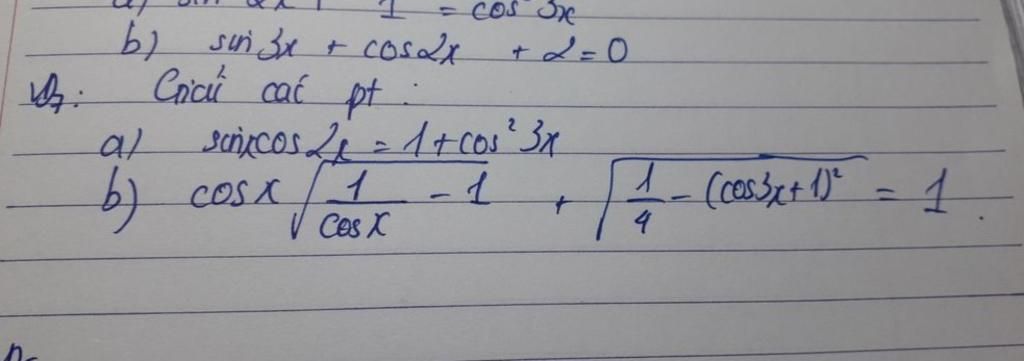 a) sin 2x + 1 = cos 3x
b) sin 3x + cos2x + 2 = 0
Giải các pt :
a) sinxcos 2x = 1 + cos² 3x
b) cos x √(1/cos x - 1) + √(1/4 - (cos3x + 1)²) = 1 .